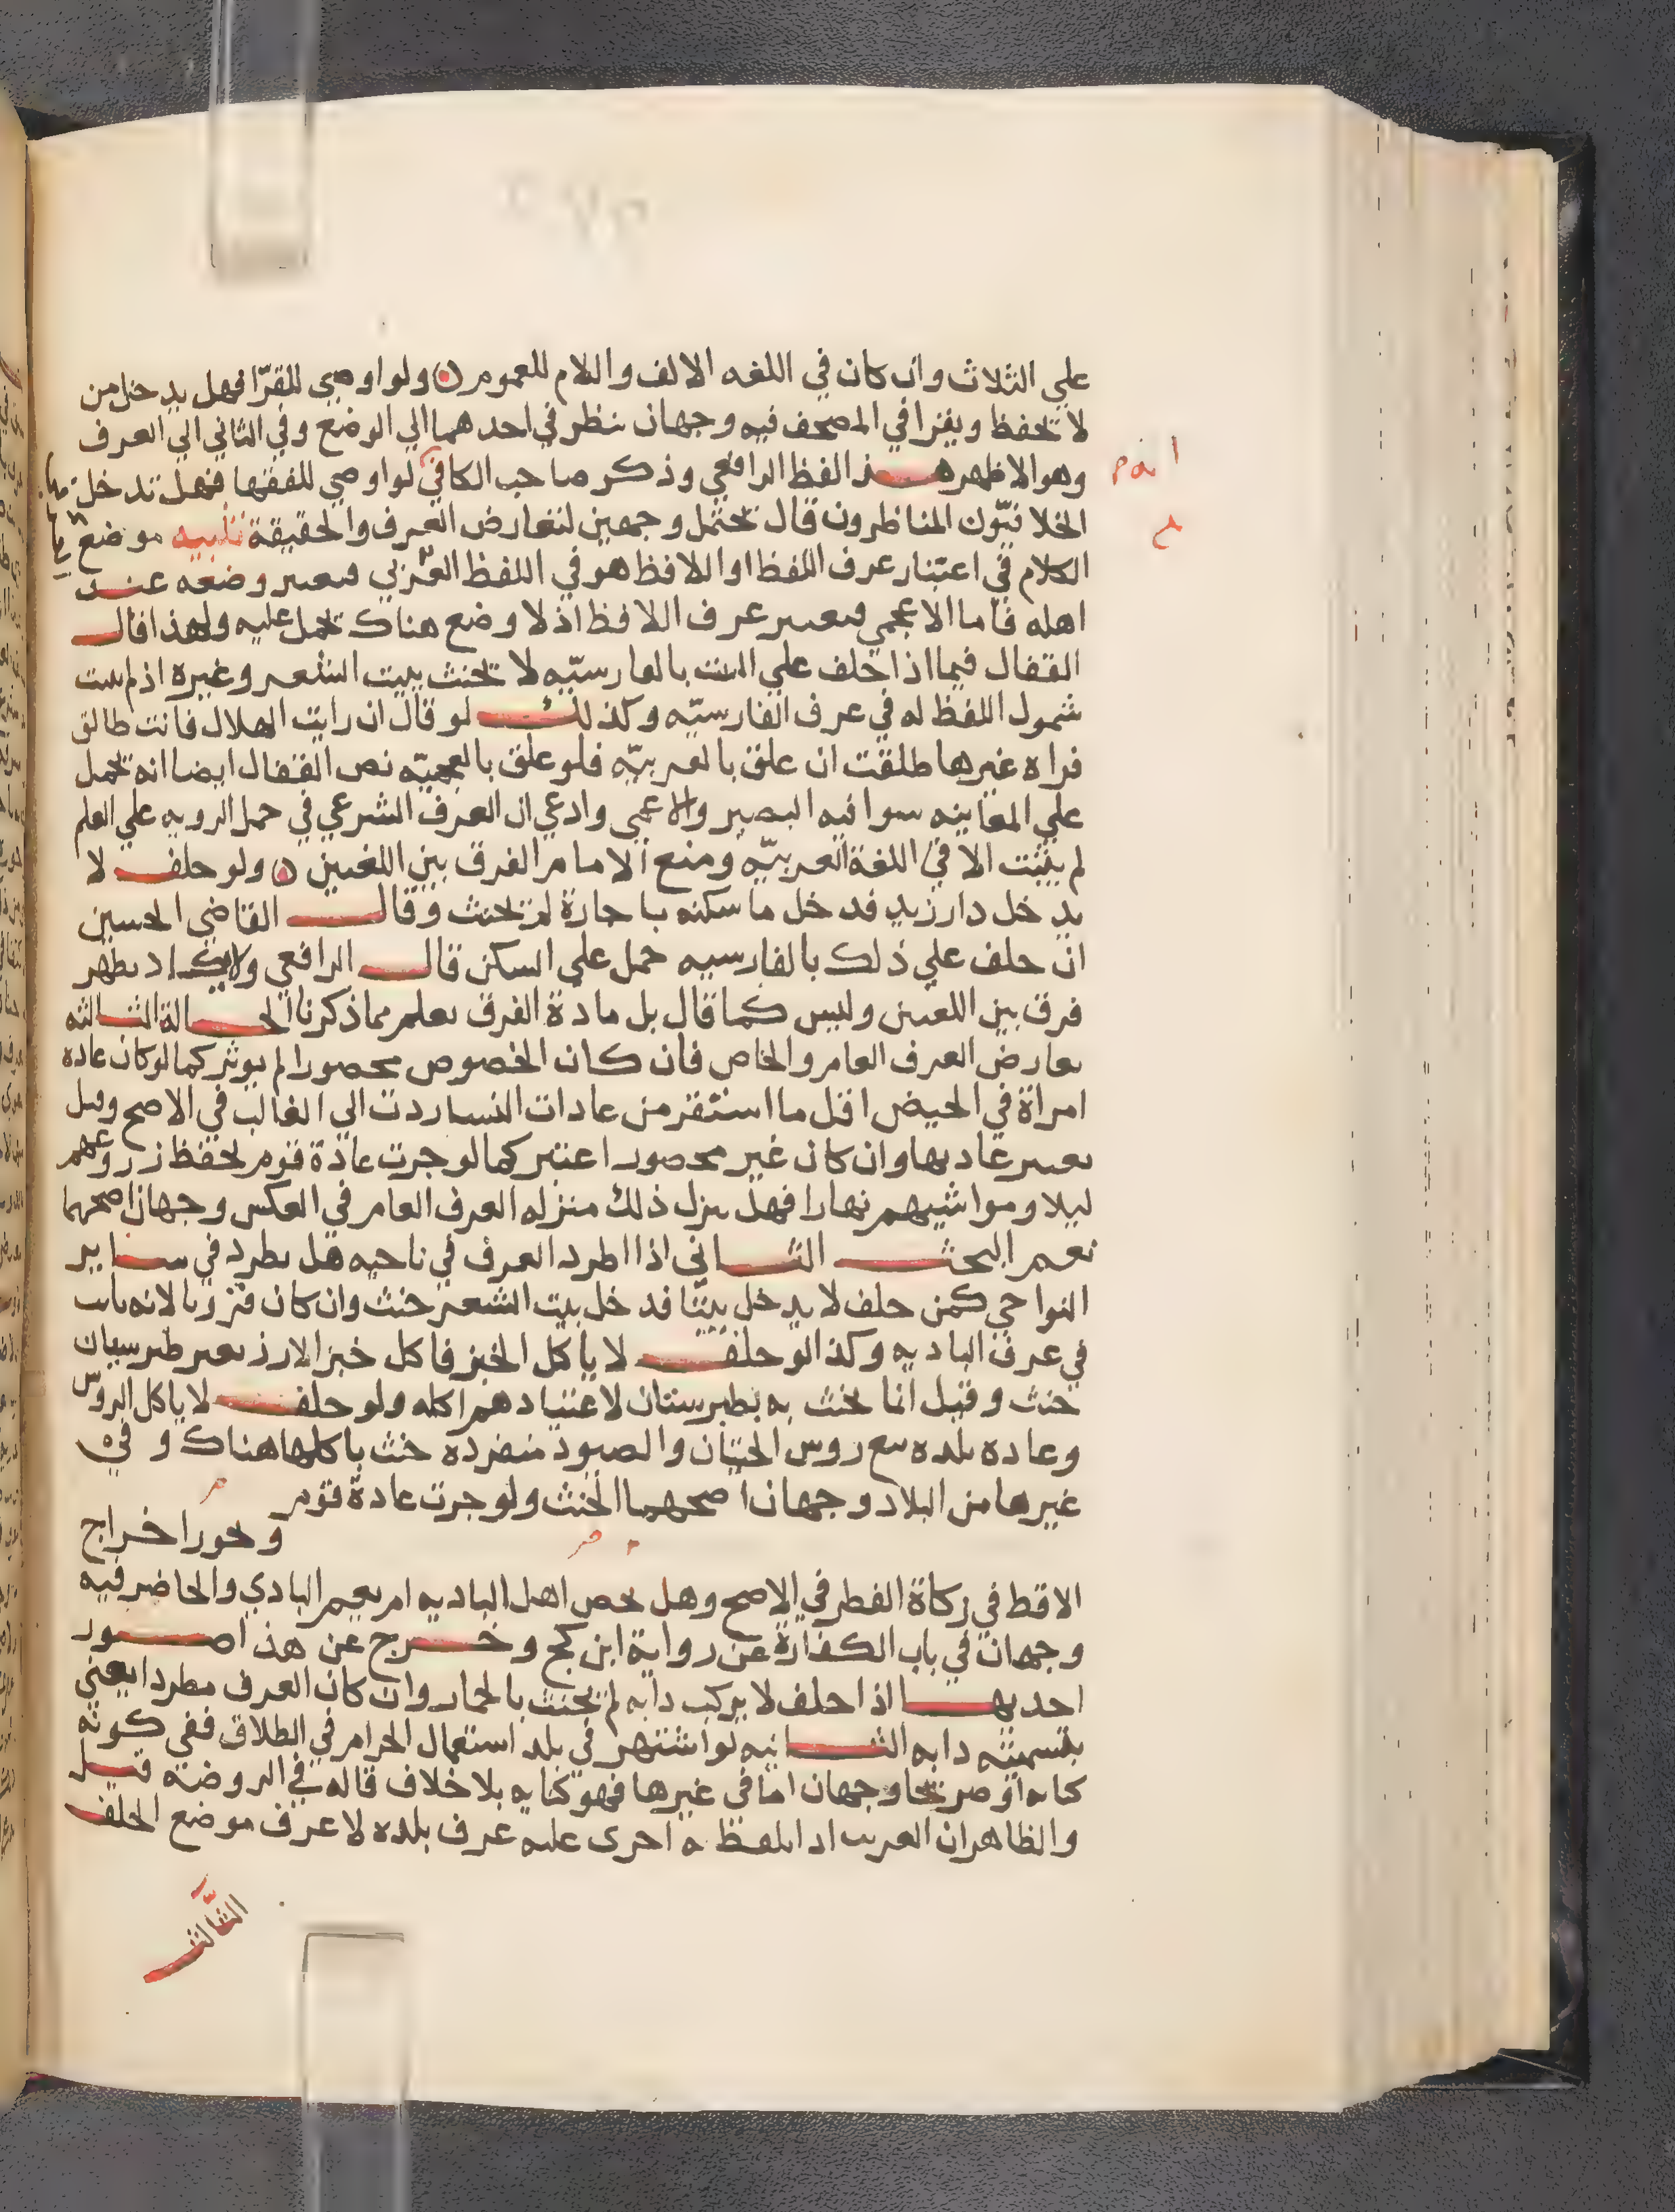 علي الثلاث وان كان في اللغه الالف واللام للعموم ولو اوصي للقرّا فهل يدخل من
لا يحفظ ويقرا في المصحف فيه وجهان ينظر في احدهما الي الوضع وفي الثاني الي العرف
وهو الاظهر هذا لفظ الرافعي وذكر صاحب الكافي لو اوصي للفقها فهل تدخل
الخلافيّون المناظرون قال يحتمل وجهين لتعارض العرف والحقيقة تنبيه موضع
الكلام في اعتبار عرف اللفظ او اللافظ هو في اللفظ العربي فيعتبر وضعه عند
اهله فاما الاعجمي فيعتبر عرف اللافظ اذ لا وضع هناك يحمل عليه ولهذا قال
القفال فيما اذا حلف علي البيت بالفارسيّه لا يحنث ببيت الشعر وغيره اذ لم يثبت
شمول اللفظ له في عرف الفارسيّه وكذلك لو قال ان رايت الهلال فانت طالق
فراه غيرها طلقت ان علق بالعربيّه فلو علق بالعجميّه نص القفال ايضا انه يحمل
علي المعاينه سوا فيه البصير والاعمي وادعي ان العرف الشرعي في حمل الرويه علي العلم
لم يثبت الا في اللغة العربيّه ومنع الامام الفرق بين اللغتين ولو حلف لا
يدخل دار زيد فدخل ما سكنه باجارة لم يحنث وقال القاضي الحسين
ان حلف علي ذلك بالفارسيه حمل علي السكن قال الرافعي ولا يكاد يظهر
فرق بين اللغتين وليس كما قال بل مادة الفرق تعلم مما ذكرنا الحالة الثالثه
تعارض العرف العام والخاص فان كان الخصوص محصورا لم يوثر كما لو كان عادة
امراة في الحيض اقل ما استقر من عادات النسا ردت الي الغالب في الاصح وقيل
تعتبر عادتها وان كان غير محصور اعتبر كما لو جرت عادة قوم بحفظ زروعهم
ليلا ومواشيهم نهارا فهل ينزل ذلك منزله العرف العام في العكس وجهان اصحهما
نعم البحث الثاني اذا اطرد العرف في ناحيه هل يطرد في ساير
النواحي كمن حلف لا يدخل بيتا فدخل بيت الشعر حنث وان كان قرويا لانه بات
في عرف الباديه وكذا لو حلف لا ياكل الخبز فاكل خبز الارز بغير طبرستان
حنث وقيل انما يحنث به بطبرستان لاعتيادهم اكله ولو حلف لا ياكل الروس
وعاده بلده بيع روس الحيتان والصيود منفرده حنث باكلها هناك وفي
غيرها من البلاد وجهان اصحهما الحنث ولو جرت عادة قوم
ونحو اخراج
الاقط في زكاة الفطر في الاصح وهل يخص اهل الباديه ام يعم البادي والحاضر فيه
وجهان في باب الكفارة عن رواية ابن كج وخرج عن هذا صور
احديها اذا حلف لا يركب دابه لم يحنث بالحمار وان كان العرف مطردا يعني
بتسميته دابه الثانيه لو اشتهر في بلد استعمال الحرام في الطلاق ففي كونه
كنايه او صريحا وجهان اما في غيرها فهو كنايه بلا خلاف قاله في الروضه قيل
والظاهر ان الغريب اذا تلفظ به اجري عليه عرف بلده لا عرف موضع الحلف
الثالث